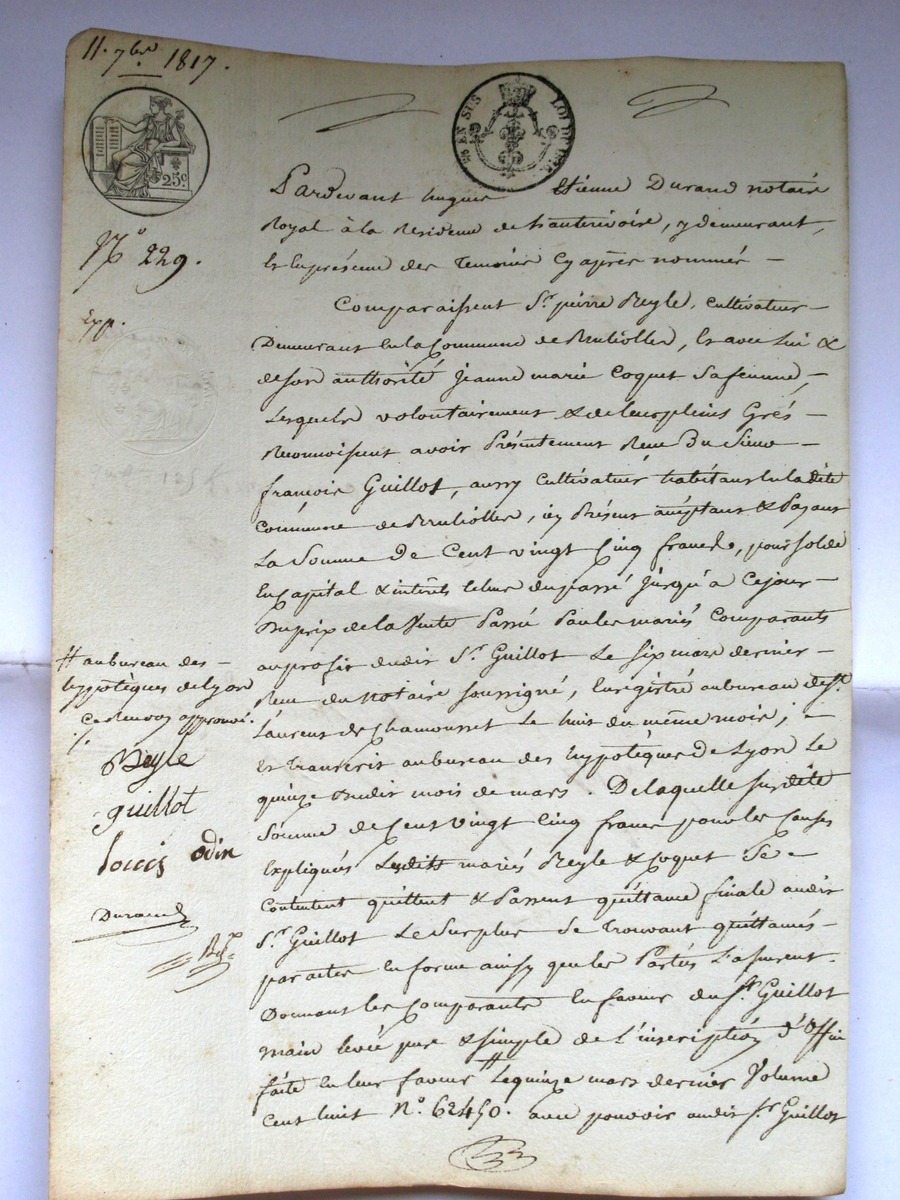 11. 7bre 1817.
25 c
EN SUS
LOI DE 1816
N° 229.
Exp.
Pardevant hugues Etienne Durand notaire
Royal à la Residence de hauterivoire, y demeurant,
Et En présence des Temoins Cy après nommés —
Comparaissent Sr. pierre Reyle, cultivateur —
Demeurant En la Commune de Brulliolles, Et avec Lui &
de son authorité Jeanne marie Coquet Sa femme, —
Lesquels volontairement & de leurs pleins Grés —
Reconnoissent avoir Présentement Reçu Du Sieur —
françois Guillot, aussy cultivateur habitant En la dite
Commune de Brulliolles, icy Présent acceptant & Payant
La Somme De Cent vingt Cinq francs, pour Solde
En Capital & intérêts Echus du passé Jusqu'a Ce jour —
Du prix de la Vente Passé Par les mariés Comparants
au profit dudit Sr. Guillot Le Six mars dernier —
Reçu du Notaire Soussigné, Enregistré au bureau de St.
Laurent de Chamousset Le huit du même mois; —
Et Transcrit au bureau des hyppotèques De Lyon Le
quinze dudit mois de mars. De laquelle Susdite
Somme de Cent vingt Cinq francs pour les Causes
Expliqués Lesdits mariés Reyle & Coquet Se —
Contentent quittent & Passent quittance finale audit
Sr. Guillot Le Surplus Se Trouvant quittancés —
par actes En forme ainsy que les Parties L'assurent.
Donnant les Comparants En faveur du Sr. Guillot
main levée pure & simple de L'inscription d'Office
faite En leur faveur # Le quinze mars dernier Volume
Cent huit N°. 62450. avec pouvoir audit Sr. Guillot
# au bureau des —
hyppotèques de Lyon
Ce Renvoy approuvé.
Reyle
guillot
louis odin
Durand